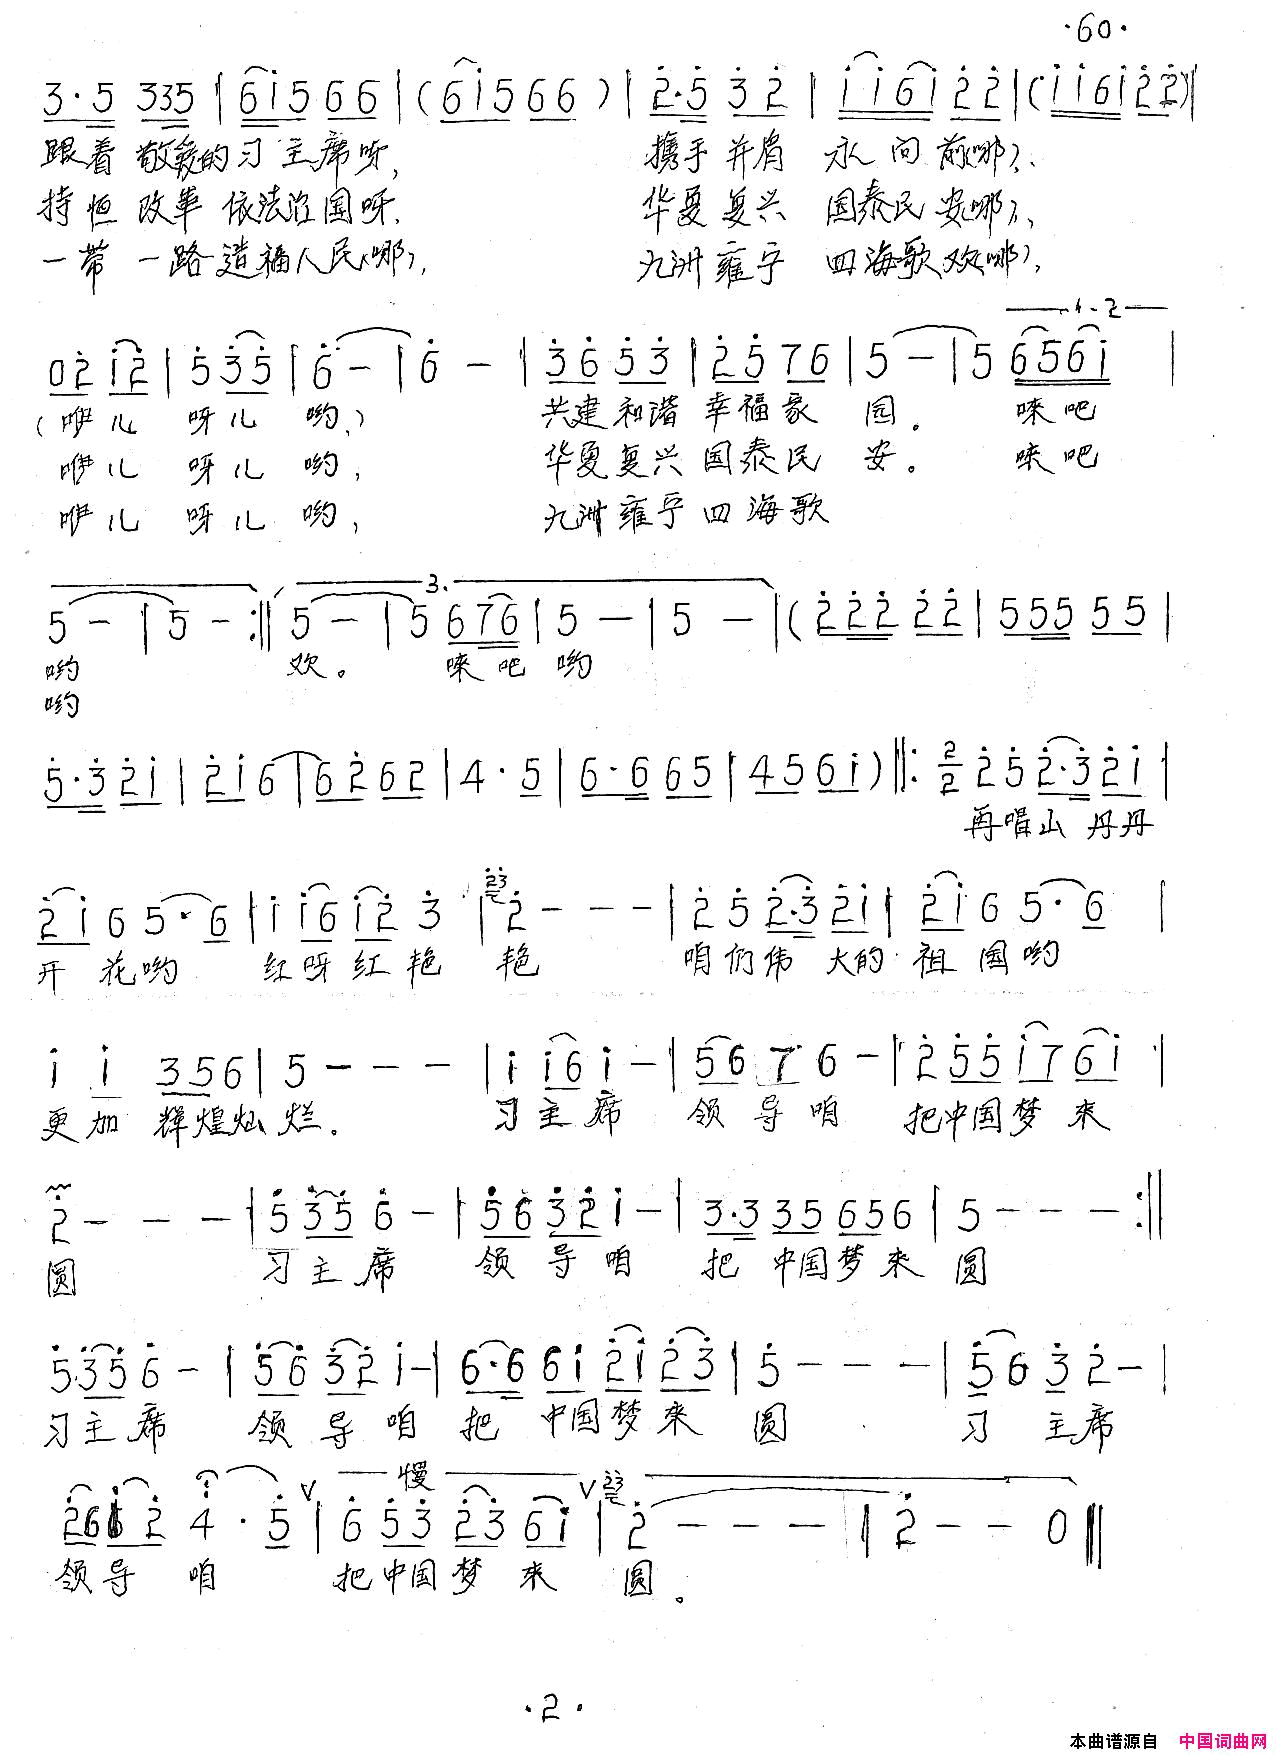 ·60·
3·5 335 | 6i566 | (6i566) | 2·5 3 2 | i i 6 i 2 2 | (i i 6 i 2 2) ‖
跟着 敬爱的习主席呀, 携手并肩 永向前(哪)、
持恒 改革 依法治国呀、 华夏复兴 国泰民安(哪)、
一带 一路造福人民(哪), 九洲雍宁 四海歌欢(哪),
1.2
0 2 i 2 | 5 3 5 | 6 - | 6 - | 3 6 5 3 | 2 5 7 6 | 5 - | 5 656i |
(咿儿 呀儿 哟、) 共建和谐 幸福家 园。 唻吧
咿儿 呀儿 哟, 华夏复兴国泰民 安。 唻吧
咿儿 呀儿 哟, 九洲雍宁四海歌
3.
5 - | 5 - :‖ 5 - | 5 676 | 5 - | 5 - | (2 2 2 2 2 | 5 5 5 5 5 |
哟 欢。 唻吧哟
哟
5·3 2 i | 2 i 6 | 6 2 6 2 | 4·5 | 6·6 6 5 | 4 5 6 i) ‖: 2/2 2 5 2·3 2 i |
再唱山丹丹
2 i 6 5·6 | i i 6 i 2 3 | 23 2 - - - | 2 5 2·3 2 i | 2 i 6 5·6 |
开花哟 红呀红艳 艳 咱们伟大的 祖国哟
i i 3 5 6 | 5 - - - | i i 6 i - | 5 6 7 6 - | 2 5 5 i 7 6 i |
更加 辉煌灿烂。 习主席 领导咱 把中国梦来
2 - - - | 5 3 5 6 - | 5 6 3 2 i - | 3·3 3 5 6 5 6 | 5 - - - :‖
圆 习主席 领导咱 把中国梦来圆
5 3 5 6 - | 5 6 3 2 i - | 6·6 6 i 2 i 2 3 | 5 - - - | 5 6 3 2 - |
习主席 领导咱 把中国梦来 圆 习主席
慢
2 6 i 2 4·5 | 6 5 3 2 3 6 i | 23 2 - - - | 2 - - 0 ‖
领导 咱 把中国梦来 圆。
·2·
本曲谱源自 中国词曲网